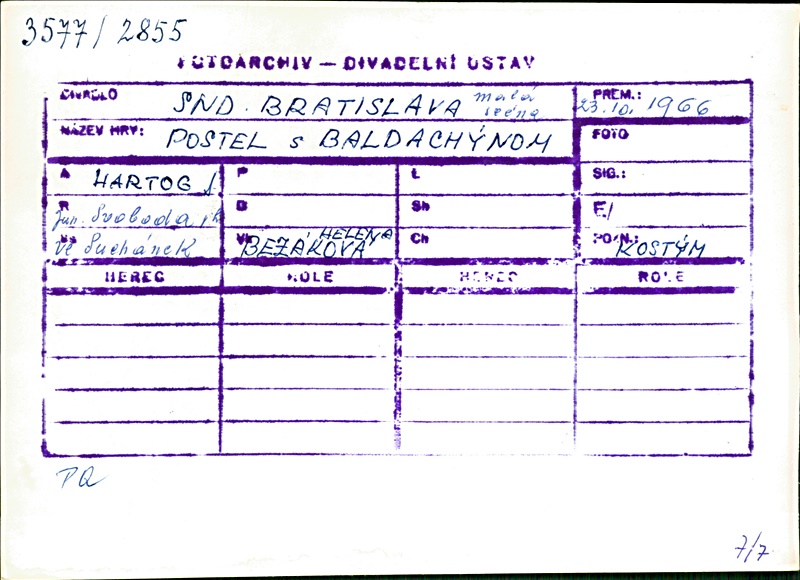 3577/2855
FOTOARCHIV — DIVADELNÍ ÚSTAV
DIVADLO SND. BRATISLAVA malá scéna PREM.: 23.10.1966
NÁZEV HRY: POSTEL s BALDACHÝNOM FOTO
A HARTOG J. P L SIG.:
R Jun. Svoboda B Sh E/
Vé Suchánek Vk BEZÁKOVÁ HELENA Ch POZN.: KOSTÝM
HEREC ROLE HEREC ROLE
PQ
7/7